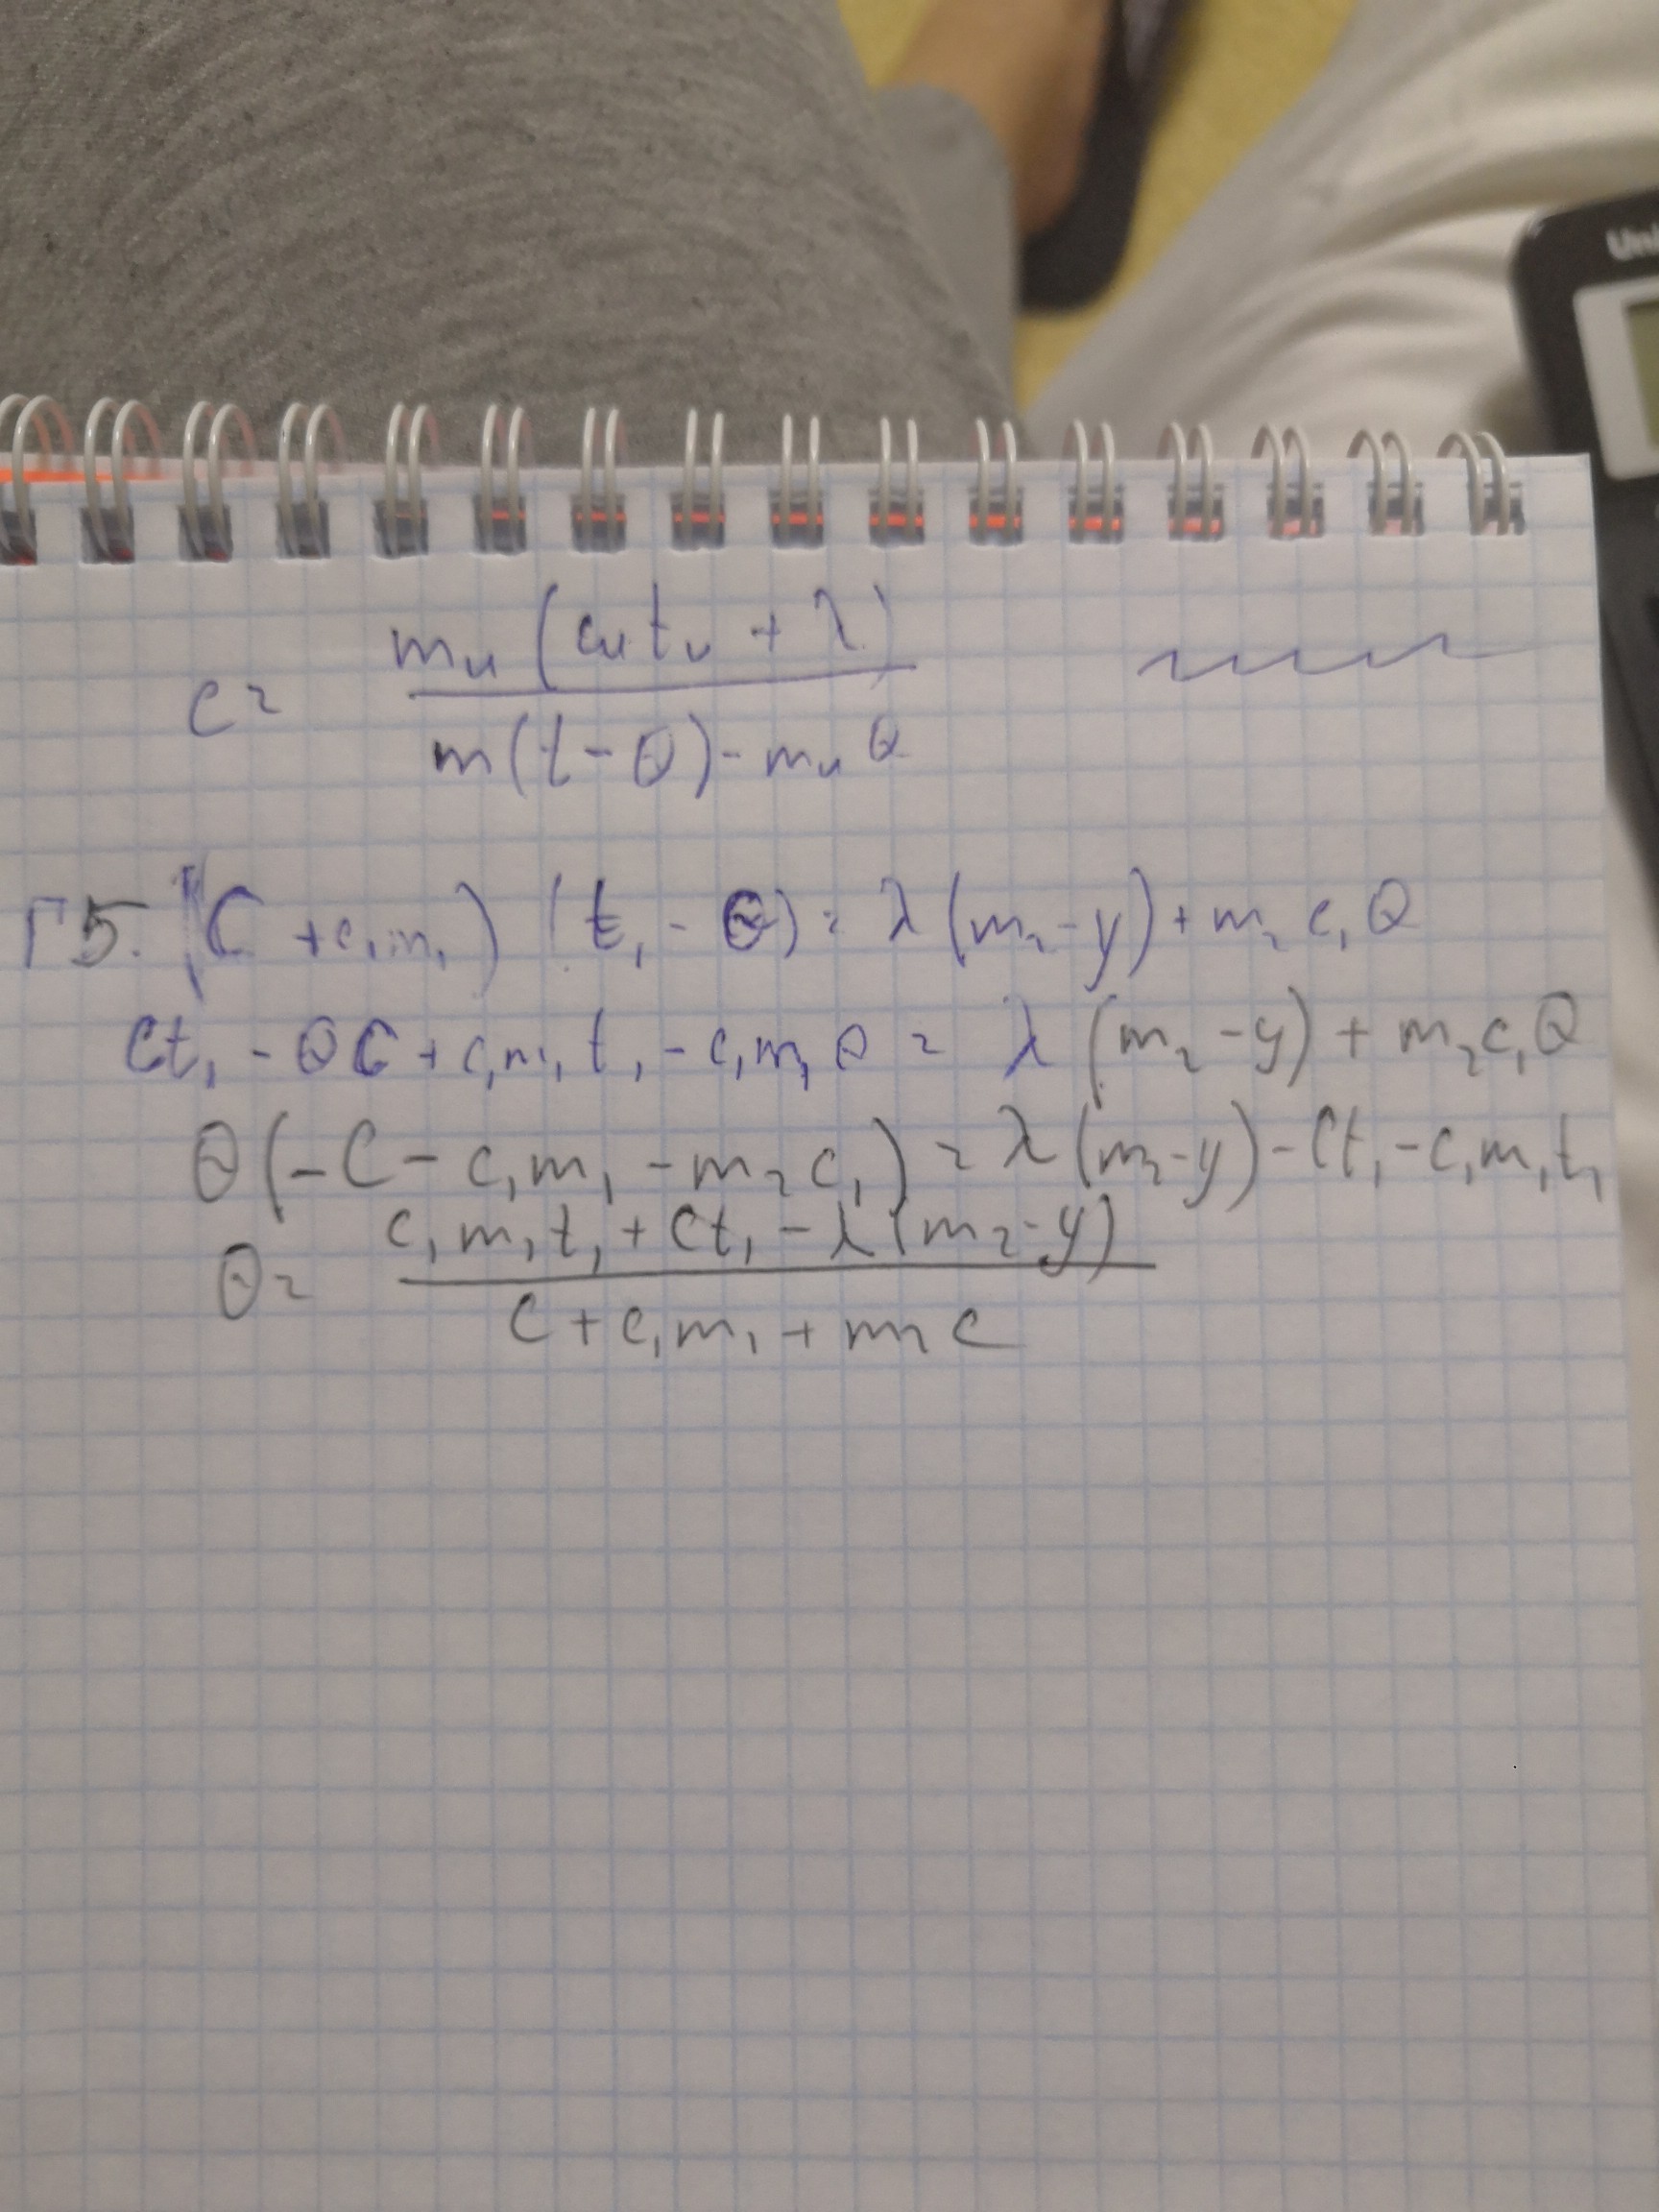 Uni
c = m_u (c_u t_u + λ) / m(t - θ) - m_u θ
Г5. (C + c₁m₁) (t₁ - θ) = λ(m₂ - y) + m₂ c₁ θ
Ct₁ - θC + c₁m₁t₁ - c₁m₁θ = λ (m₂ - y) + m₂c₁θ
θ(-C - c₁m₁ - m₂c₁) = λ(m₂-y) - Ct₁ - c₁m₁t₁
θ = c₁m₁t₁ + Ct₁ - λ(m₂-y) / C + c₁m₁ + m₂c